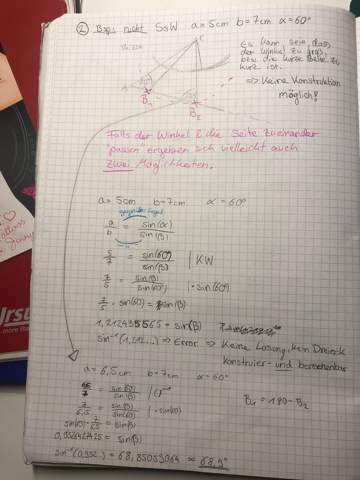 ② Bsp. nicht SsW a=5cm b=7cm α=60°
Es kann sein, dass
der Winkel zu groß,
bzw. die kurze Seite zu
kurz ist.
⇒ Keine Konstruktion
möglich!
C
A
B₁
B₂
Falls der Winkel & die Seite zueinander
"passen" ergeben sich vielleicht auch
zwei Möglichkeiten.
a=5cm b=7cm α=60°
a/b = sin(α)/sin(β)
5/7 = sin(60°)/sin(β) | KW
7/5 = sin(β)/sin(60°) | ·sin(60)
7/5 · sin(60) = sin(β)
1,212435565 = sin(β)
sin⁻¹(1,212...) ⇒ Error ⇒ Keine Lösung, kein Dreieck
konstruier- und berechenbar
a=6,5cm b=7cm α=60°
6,5/7 = sin(60)/sin(β) | ( )⁻¹
7/6,5 = sin(β)/sin(60) | ·sin(60)
sin(60)·7/6,5 = sin(β)
= sin(β)
sin⁻¹(0,932...) = 68,85053064 ≈ 68,9°
B₁ = 180 - B₂